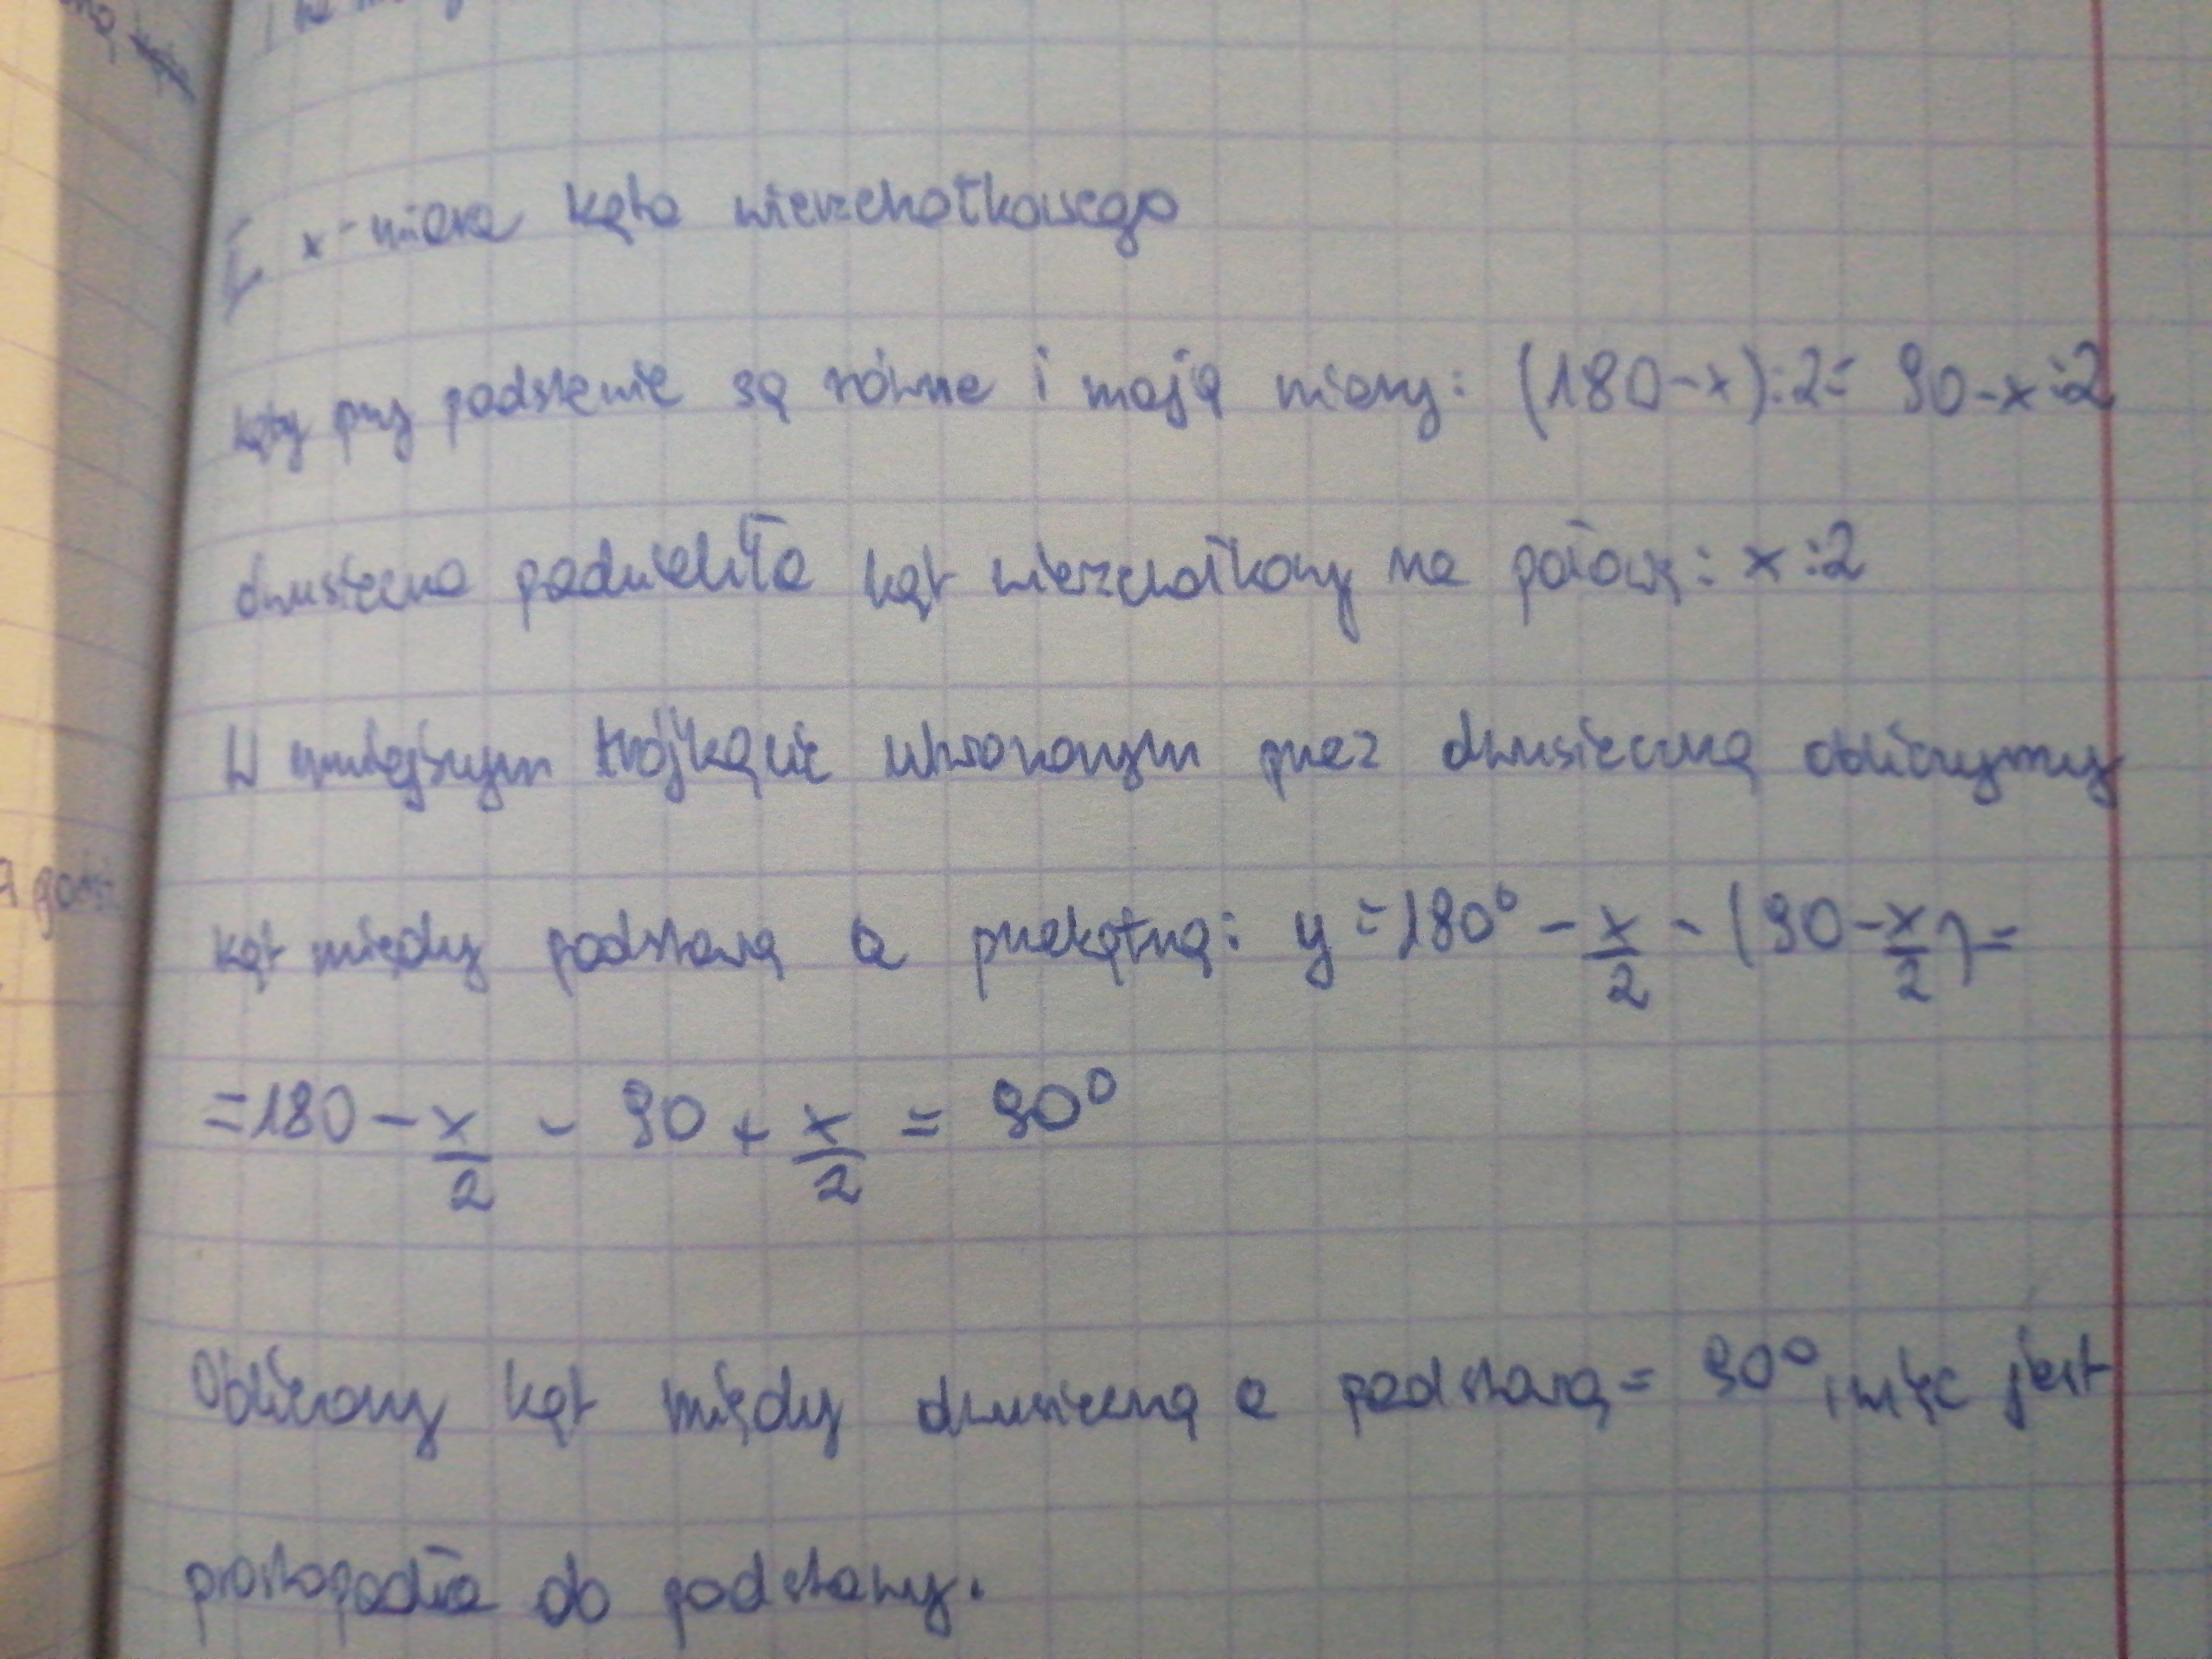 x - miara kąta wierzchołkowego
kąty przy podstawie są równe i mają miary: (180-x):2= 90-x:2
dwusieczna podzieliła kąt wierzchołkowy na połowę: x:2
W mniejszym trójkącie utworzonym przez dwusieczną obliczymy
kąt między podstawą a przekątną: y=180° - x/2 - (90 - x/2) =
=180 - x/2 - 90 + x/2 = 90°
Obliczony kąt między dwusieczną a podstawą = 90°, więc jest
prostopadła do podstawy.